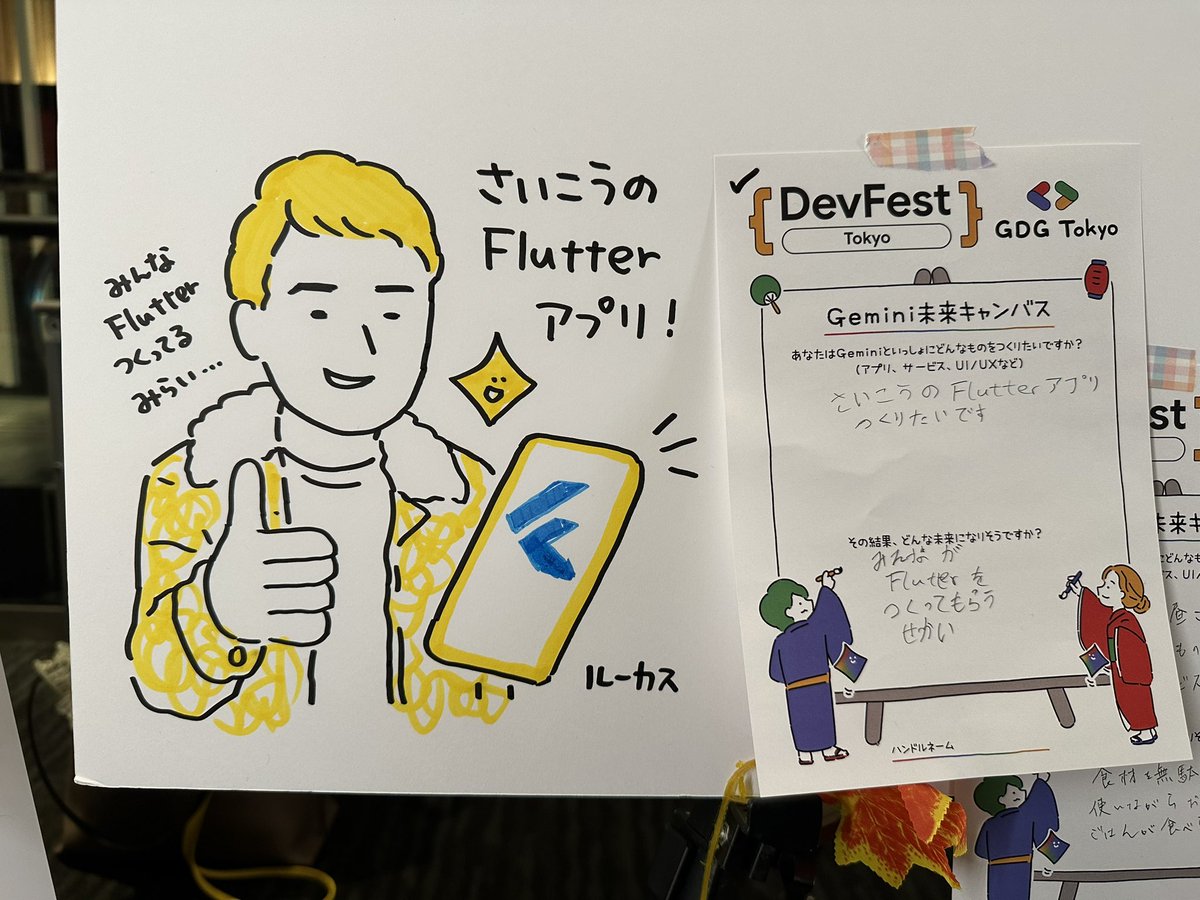 みんな
Flutter
つくってる
みらい...
さいこうの
Flutter
アプリ!
ルーカス
DevFest
Tokyo
GDG Tokyo
Gemini未来キャンバス
あなたはGeminiといっしょにどんなものをつくりたいですか?
(アプリ、サービス、UI/UXなど)
さいこうの Flutterアプリ
つくりたいです
その結果、どんな未来になりそうですか?
みんなが
Flutterを
つくってもらう
せかい
ハンドルネーム
st
未来キ
にどんなも
ス、UI/
食材を無駄
使いながら
ごはんが食べ